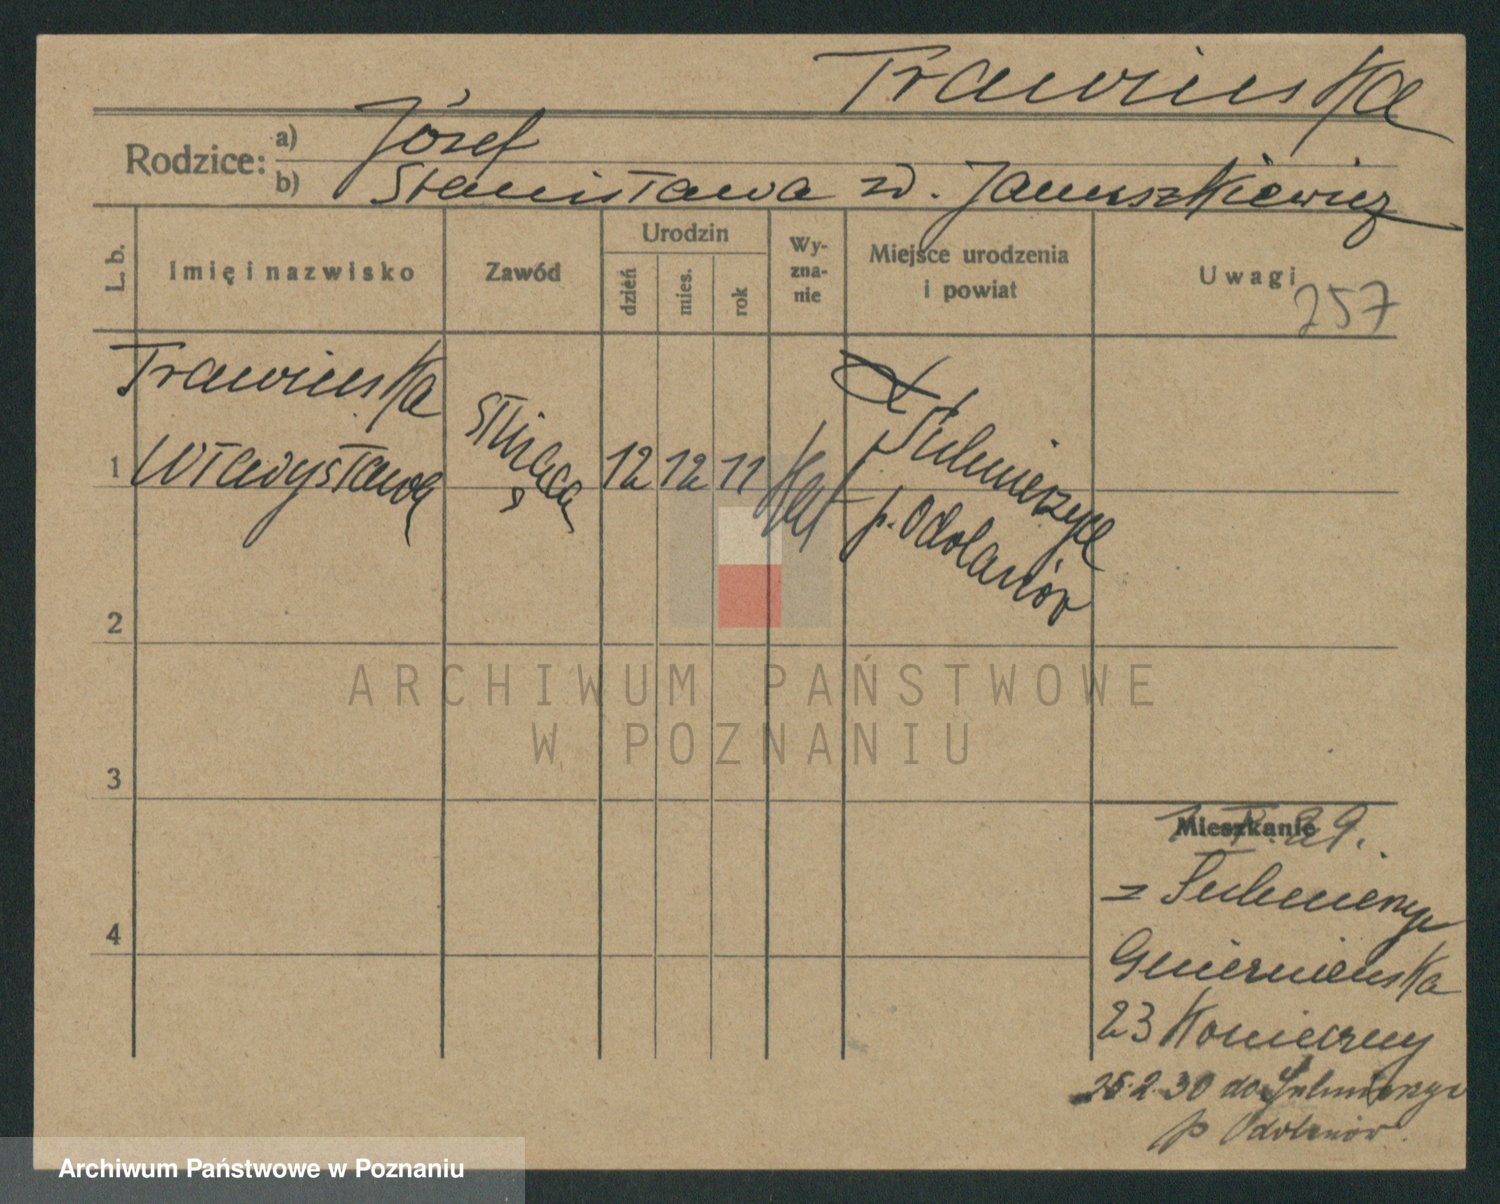 Trawinska
Rodzice: a) Józef
b) Stanisława zd. Januszkiewicz
L. b.
Imię i nazwisko
Zawód
Urodzin
dzień
mies.
rok
Wy-
zna-
nie
Miejsce urodzenia
i powiat
Uwagi
257
Trawinska
1 Władysława
służąca
12 12 11
kat
Sulmierzyce
p. Odolanów
2
3
4
Mieszkanie
29.
z Sulmierzyc
Gnieznienska
23 Konieczny
25.2.30 do Sulmierzyc
p Odolanów.
ARCHIWUM PAŃSTWOWE
W POZNANIU
Archiwum Państwowe w Poznaniu